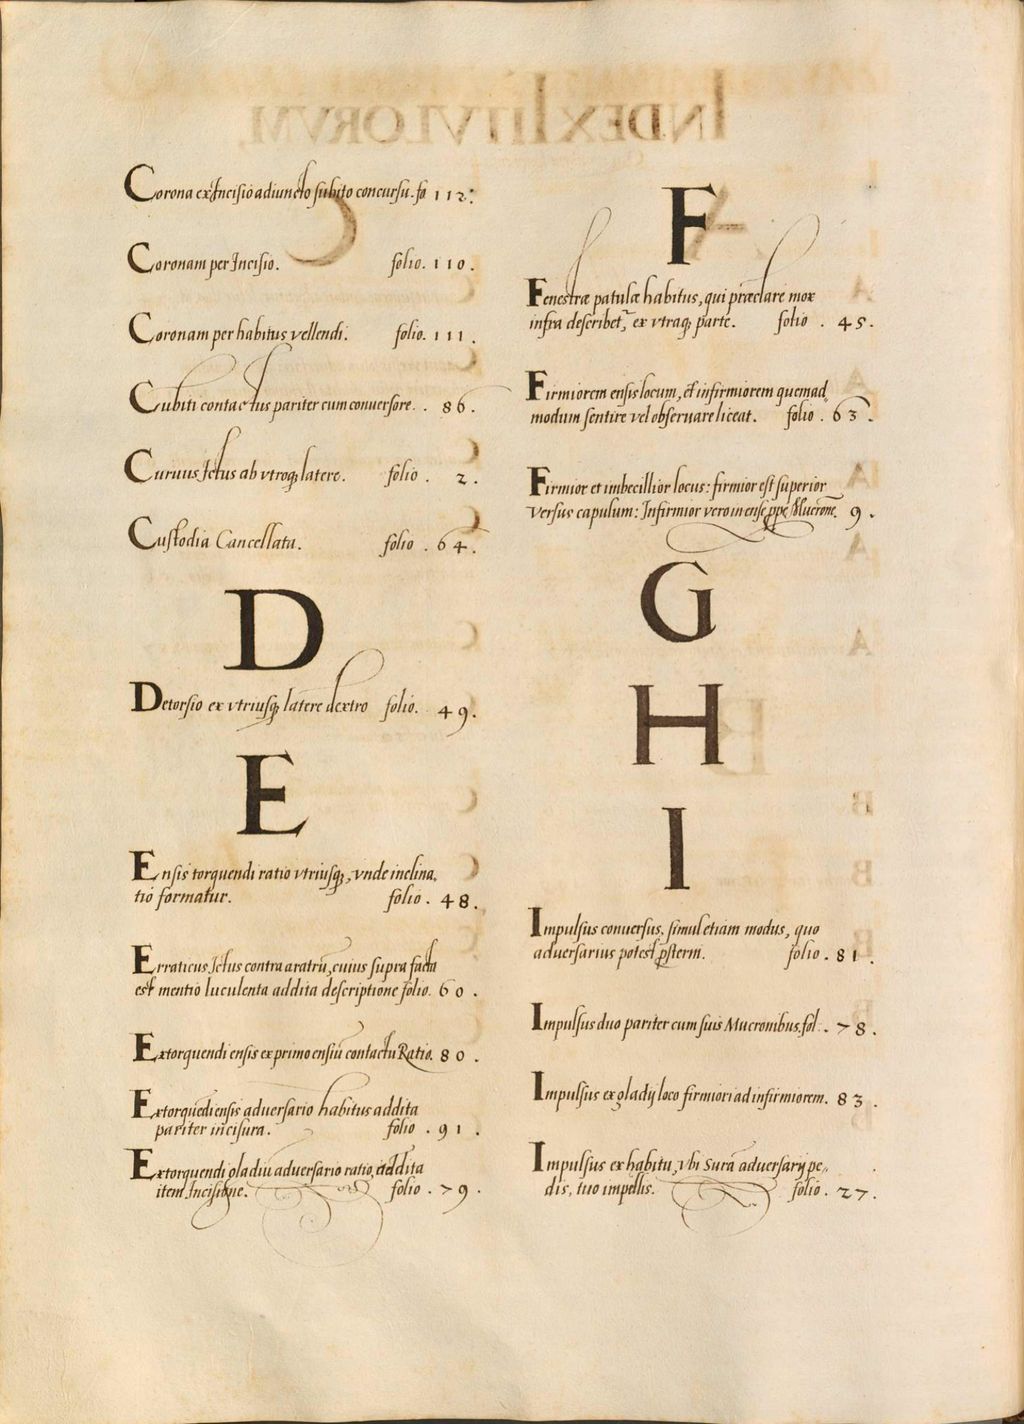 Corona ex Incisio adiuncto subito concursu. fo 112.
Coronam per Incisio. folio. 110.
Coronam per habitus vellendi. folio. 111.
Cubiti contactus pariter cum conuersore. . 86.
Curuus Ictus ab vtroq; latere. folio . 2.
Custodia Cancellata. folio . 64.
D
Detorsio ex vtriusq; latere dextro folio. 49.
E
Ensis torquendi ratio vtriusq;, vnde inclina,
tio formatur. folio. 48.
Erraticus Ictus contra aratrũ, cuius supra facta
est mentio luculenta addita descriptione folio. 60.
Extorquendi ensis ex primo ensiũ contactu Ratio. 80.
Extorquẽdi ensis aduersario habitus addita
pariter incisura. folio . 91.
Extorquendi gladiũ aduersario ratio, addita
item Incisione. folio . 79.
F
Fenestræ patulæ habitus, qui præclare mox
infra describet᷑, ex vtraq; parte. folio . 45.
Firmiorem ensis locum, et infirmiorem quemad,
modum sentire vel obseruare liceat. folio. 63.
Firmior et imbecillior locus: firmior est superior
versus capulum: Infirmior vero in ense ꝓpe Mucronẽ. 9.
G
H
I
Impulsus conuersus, simul etiam modus, quo
aduersarius potest ꝓsterni. folio. 81.
Impulsus duo pariter cum suis Mucronibus. fol. . 78.
Impulsus ex gladij loco firmiori ad infirmiorem. 83.
Impulsus ex habitu, vbi Surã aduersarij pe,,
dis, tuo impellis. folio. 27.
INDEX TITVLORVM,